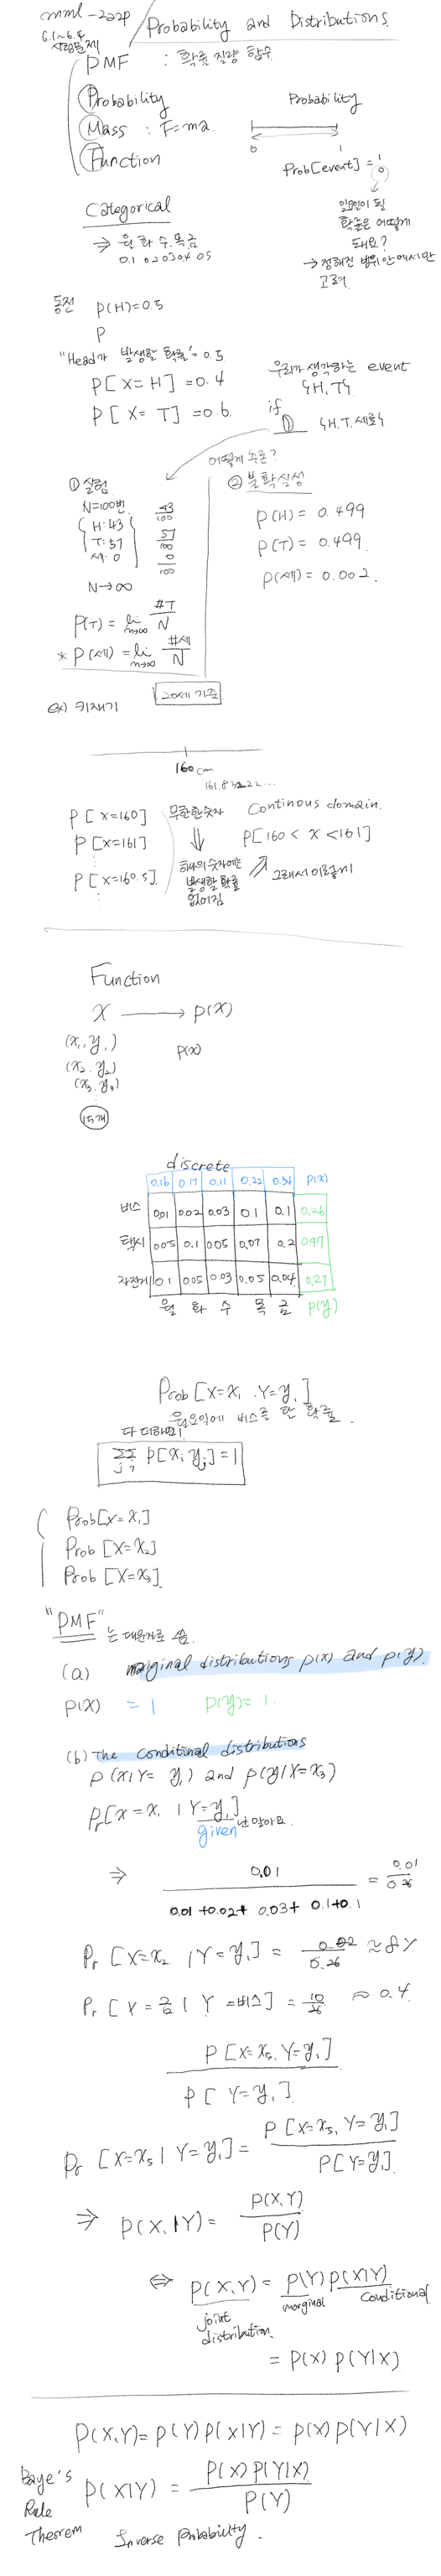 mml-222p / Probability and Distributions
6.1~6.4
시험문제
PMF : 확률 질량 함수
Probability
Mass : F=ma
Function
Probability
0 1
Prob[event] = 1
0
일어날
확률은 어떻게
돼요?
→ 정해진 범위 안에서만
고려
Categorical
⇒ 월 화 수 목 금
0.1 0.2 0.3 0.4 0.5
동전 P(H)=0.5
P
"Head가 발생할 확률" = 0.5
P[X=H] = 0.4
P[X=T] = 0.6
우리가 생각하는 event
{H,T}
if
① {H.T.세로}
어떻게 추론?
① 실험
N=100번
H:43
T:57
세:0
43/100
57/100
0/100
N→∞
P(T) = lim n→∞ #T/N
* P(세) = lim n→∞ #세/N
② 불확실성
P(H) = 0.499
P(T) = 0.499
P(세) = 0.002.
ex) 키재기
20세 기준
160cm
161.83222...
P[X=160]
P[X=161]
⋮
P[X=160.5]
무한한 숫자
⇓
하나의 숫자에는
발생할 확률
없어짐
Continous domain.
P[160 < X < 161]
그래서 이렇게
Function
X → P(X)
(x₁, y₁)
(x₂, y₂)
(x₃, y₃)
⋮
15개
P(x)
discrete
0.16 0.17 0.11 0.22 0.34 P(x)
버스 0.01 0.02 0.03 0.1 0.1 0.26
택시 0.05 0.1 0.05 0.07 0.2 0.47
자전거 0.1 0.05 0.03 0.05 0.04 0.27
월 화 수 목 금 P(y)
Prob[X=x₁, Y=y₁]
월요일에 버스를 탄 확률.
다 더하면!
ΣΣ P[xᵢ yⱼ] = 1
Prob[X=x₁]
Prob[X=x₂]
Prob[X=x₃]
"PMF" 는 대문자로 씀.
(a) marginal distributions p(x) and p(y).
P(X) = 1 P(y) = 1.
(b) The conditinal distributions
p(x|Y=y₁) and p(y|X=x₃)
Pr[X=x₁ | Y=y₁]
given
⇒ 0.01 / 0.01+0.02+0.03+0.1+0.1 = 0.01/0.26
Pr[X=x₂ | Y=y₁] = 0.02/0.26 ≈ 8%
Pr[X=금 | Y=버스] = 10/26 ≈ 0.4
P[X=x₅, Y=y₁] / P[Y=y₁]
Pr[X=x₅ | Y=y₁] = P[X=x₅, Y=y₁] / P[Y=y₁]
⇒ P(X|Y) = P(X,Y) / P(Y)
⇔ P(X,Y) = P(Y) P(X|Y)
joint
distribution
marginal
conditional
= P(X) P(Y|X)
P(X,Y) = P(Y) P(X|Y) = P(X) P(Y|X)
Baye's
Rule
Theorem
P(X|Y) = P(X) P(Y|X) / P(Y)
Inverse probability.